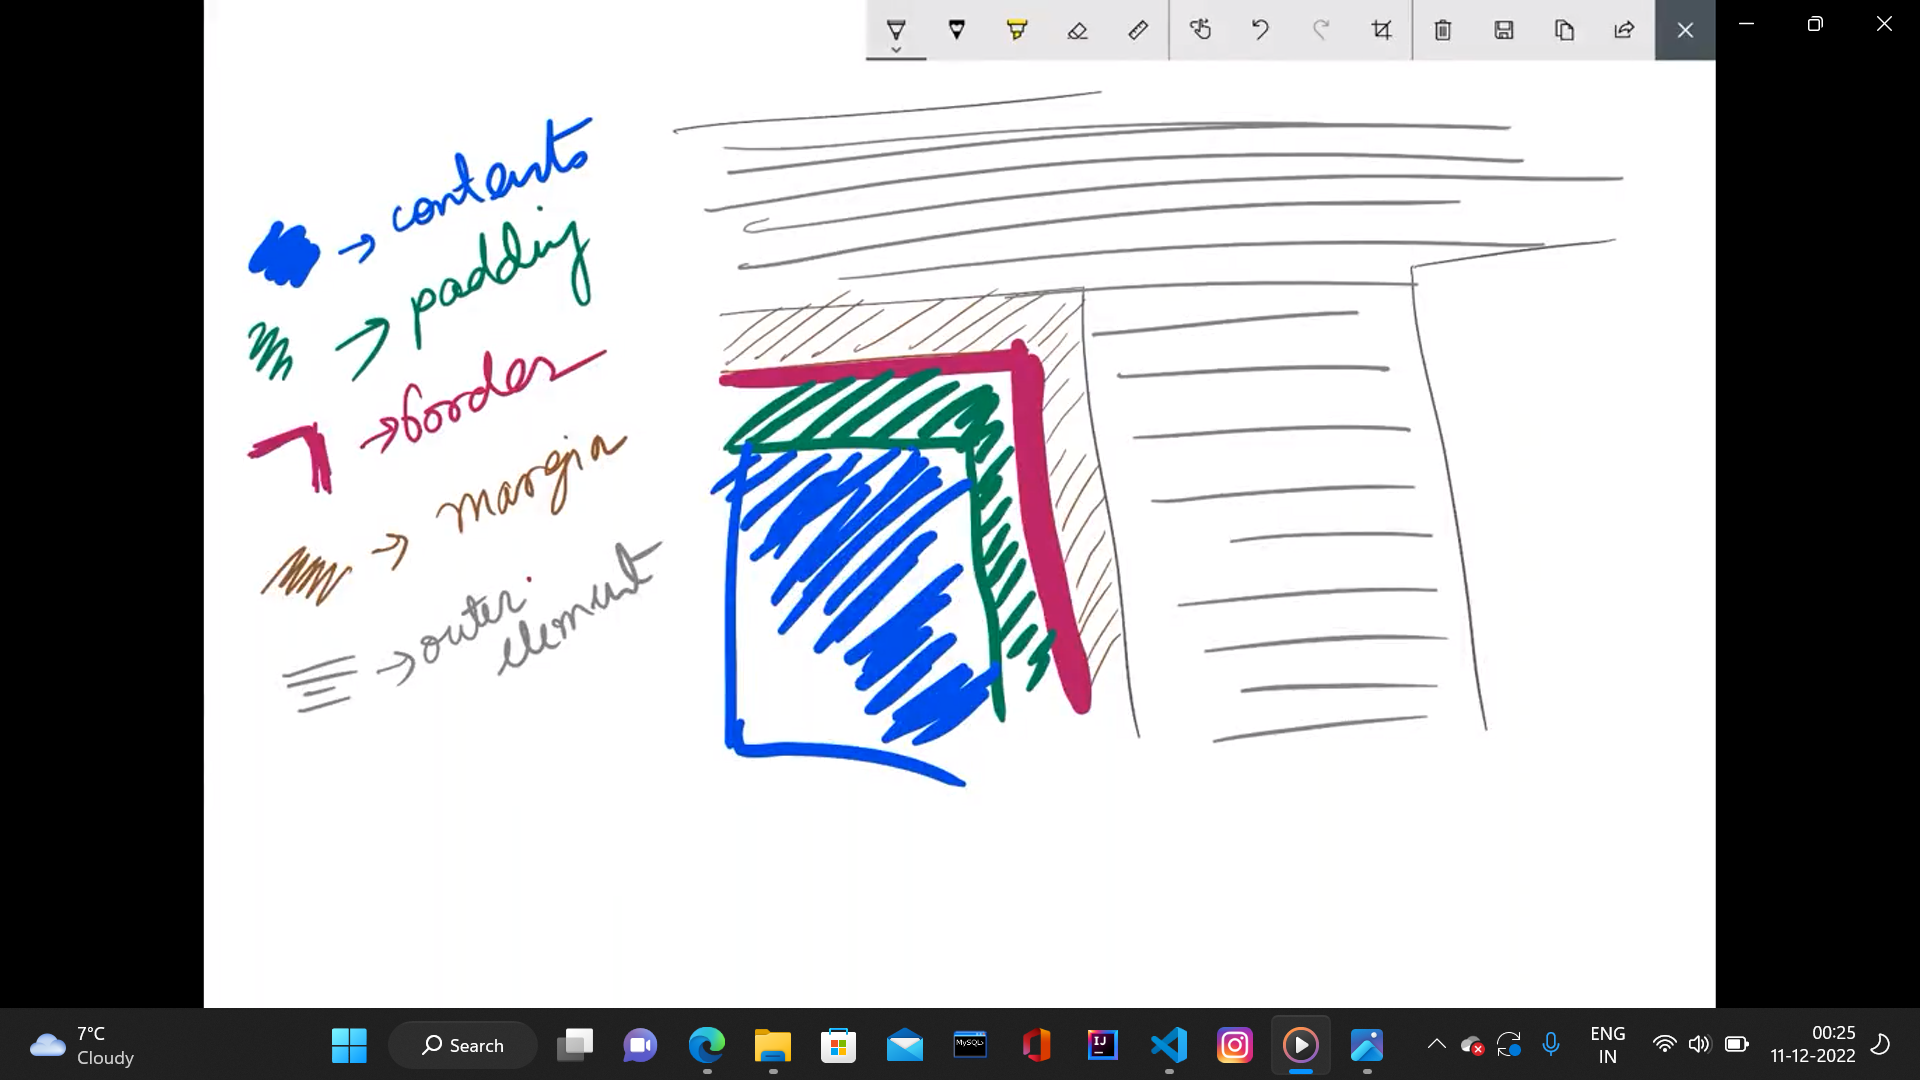 → contents
→ padding
→ border
→ margin
→ outer
element
7°C
Cloudy
Search
MySQL
IJ
ENG
IN
00:25
11-12-2022